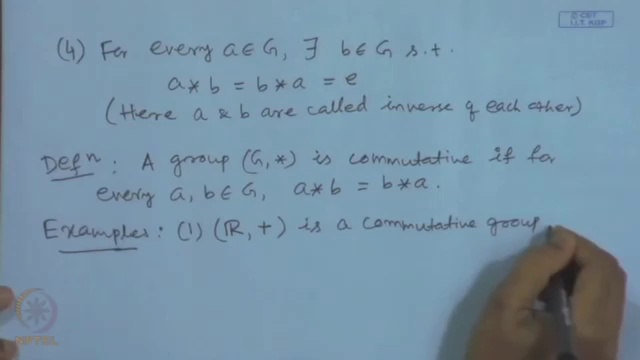 © CET
I.I.T. KGP
(4) For every a∈G, ∃ b∈G s.t.
a * b = b * a = e
(Here a & b are called inverse of each other)
Defⁿ: A group (G,*) is commutative if for
every a, b∈G, a*b = b*a.
Examples: (1) (ℝ,+) is a commutative group
NPTEL